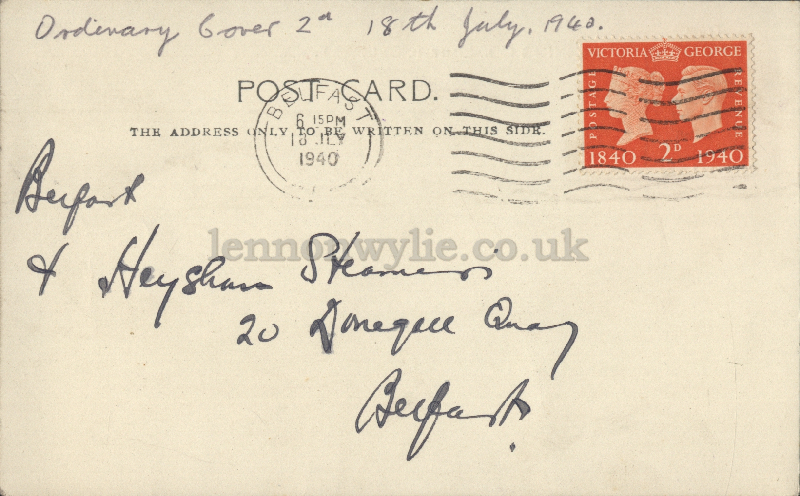 Ordinary Cover 2d 18th July, 1940.
VICTORIA GEORGE
POSTAGE
REVENUE
1840 2D 1940
POST CARD.
BELFAST
6 15PM
18 JLY
1940
THE ADDRESS ONLY TO BE WRITTEN ON THIS SIDE.
Belfast
lennonwylie.co.uk
& Heysham Steamers
20 Donegall Quay
Belfast.